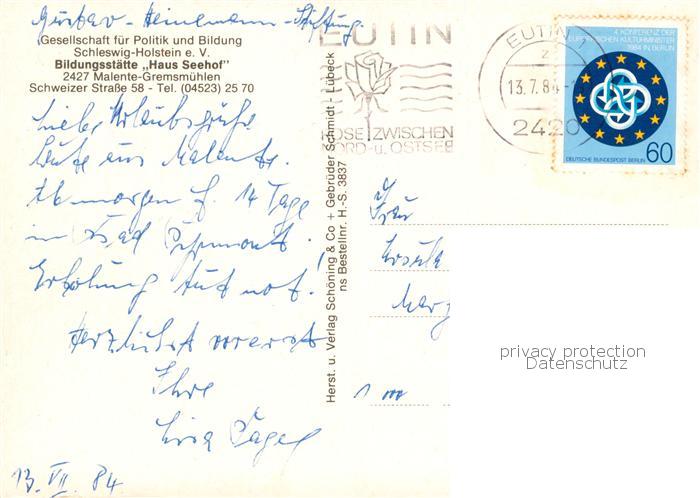 Gustav-Heinemann-Stiftung
Gesellschaft für Politik und Bildung
Schleswig-Holstein e. V.
Bildungsstätte „Haus Seehof"
2427 Malente-Gremsmühlen
Schweizer Straße 58 - Tel. (04523) 25 70
Liebe Urlaubsgrüße
heute aus Malente.
Ab morgen f. 14 Tage
in Bad Pyrmont.
Erholung tut not!
Herzlichst vorerst
Ihre
13. VII. 84
Herst. u. Verlag Schöning & Co + Gebrüder Schmidt - Lübeck
ns Bestellnr. H.-S. 3837
EUTIN
ROSE ZWISCHEN
NORD- u. OSTSEE
EUTIN 1
z
13.7.84
2420
4. KONFERENZ DER
EUROPÄISCHEN KULTURMINISTER
1984 IN BERLIN
DEUTSCHE BUNDESPOST BERLIN
60
Frau
privacy protection
Datenschutz